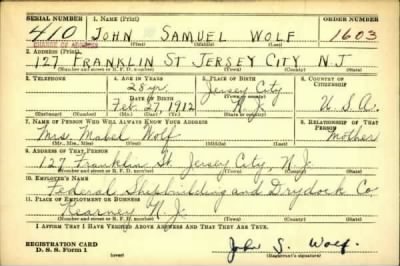 SERIAL NUMBER 1. NAME (Print) ORDER NUMBER
410 JOHN SAMUEL WOLF 1603
CHANGE OF ADDRESS (First) (Middle) (Last)
2. ADDRESS (Print)
127 FRANKLIN ST JERSEY CITY N.J.
(Number and street or R. F. D. number) (Town) (County) (State)
3. TELEPHONE 4. AGE IN YEARS 5. PLACE OF BIRTH 6. COUNTRY OF CITIZENSHIP
28 yr. Jersey City
DATE OF BIRTH (Town or county)
Feb. 27, 1912 N. J. U. S. A.
(Exchange) (No.) (Mo.) (Day) (Yr.) (State or country)
7. NAME OF PERSON WHO WILL ALWAYS KNOW YOUR ADDRESS 8. RELATIONSHIP OF THAT PERSON
Mrs. Mabel Wolf Mother
(Mr., Mrs., Miss) (First) (Middle) (Last)
9. ADDRESS OF THAT PERSON
127 Franklin St. Jersey City, N. J.
(Number and street or R. F. D. number) (Town) (County) (State)
10. EMPLOYER'S NAME
Federal Shipbuilding and Drydock Co
11. PLACE OF EMPLOYMENT OR BUSINESS
Kearney N. J.
(Number and street or R. F. D. number) (Town) (County) (State)
I AFFIRM THAT I HAVE VERIFIED ABOVE ANSWERS AND THAT THEY ARE TRUE.
REGISTRATION CARD
D. S. S. Form 1 (over) John S. Wolf.
(Registrant's signature)